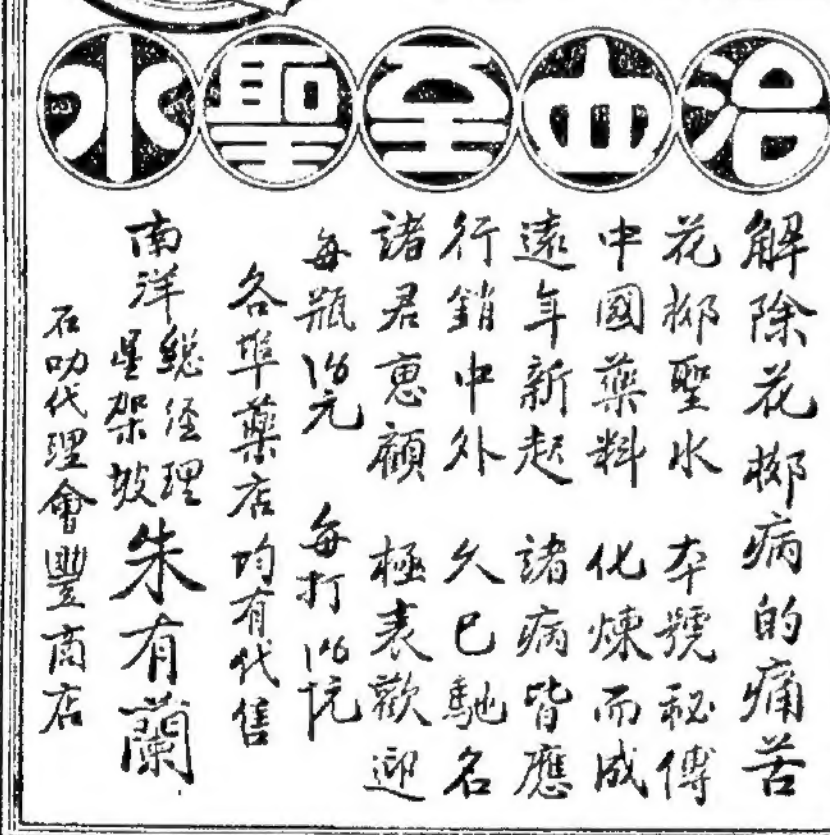 治血至聖水
解除花柳病的痛苦
花柳聖水　本號秘傳
中國藥料　化煉而成
遠年新起　諸病皆應
行銷中外　久已馳名
諸君惠顧　極表歡迎
每瓶　元　每打
各埠藥店均有代售
南洋總經理
星架坡
朱有蘭
石叻代理會豐商店